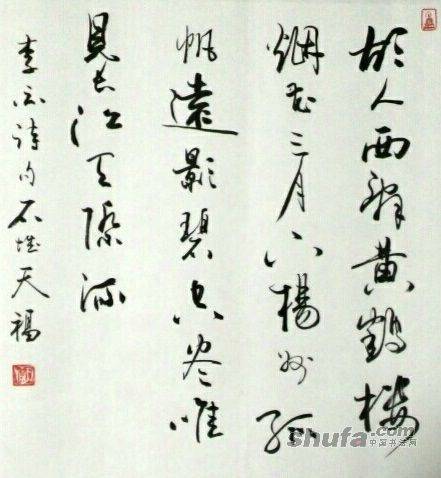 故人西辞黄鶴楼
烟花三月下楊州孤
帆遠影碧空尽唯
見长江天際流
李白诗句 石 天福
shufa.com
中国书法网